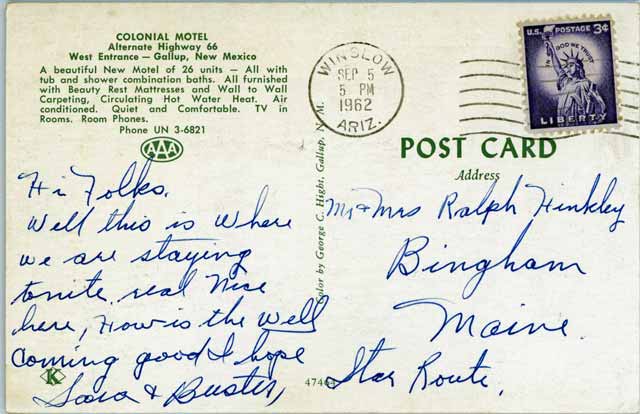 COLONIAL MOTEL
Alternate Highway 66
West Entrance — Gallup, New Mexico
A beautiful New Motel of 26 units — All with
tub and shower combination baths. All furnished
with Beauty Rest Mattresses and Wall to Wall
Carpeting, Circulating Hot Water Heat. Air
conditioned. Quiet and Comfortable. TV in
Rooms. Room Phones.
Phone UN 3-6821
AAA
Hi Folks.
Well this is where
we are staying
tonite, real nice
here, How is the Well
coming good I hope
Sara & Buster,
K
Color by George C. Hight, Gallup, N. M.
47464
WINSLOW
SEP 5
5 PM
1962
ARIZ.
U.S. POSTAGE 3¢
IN GOD WE TRUST
LIBERTY
POST CARD
Address
Mr & Mrs Ralph Hinkley
Bingham
Maine.
Star Route.